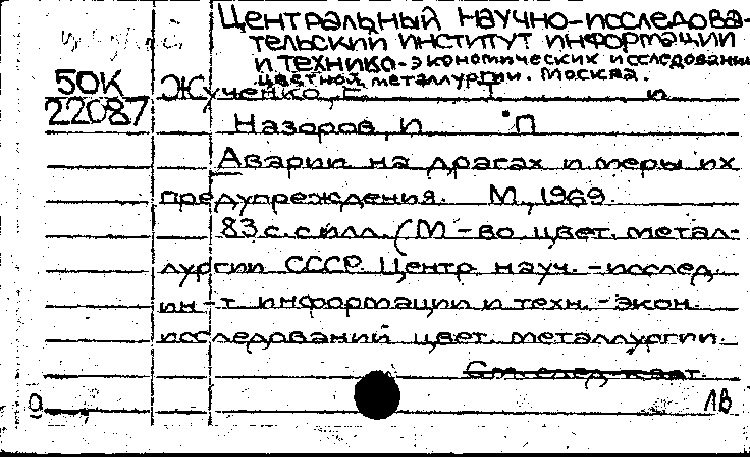 Центральный научно-исследова-
тельский институт информации
и технико-экономических исследований
цветной металлургии. Москва.
50К
22087
Жученко, Е. Т. и
Назоров, И П
Аварии на драгах и меры их
предупреждения. М., 1969.
83 с. с илл. (М-во цвет. метал-
лургии СССР. Центр. науч.-исслед.
ин-т информации и техн.-экон.
исследований цвет. металлургии.
См. след. карт.
9
1В